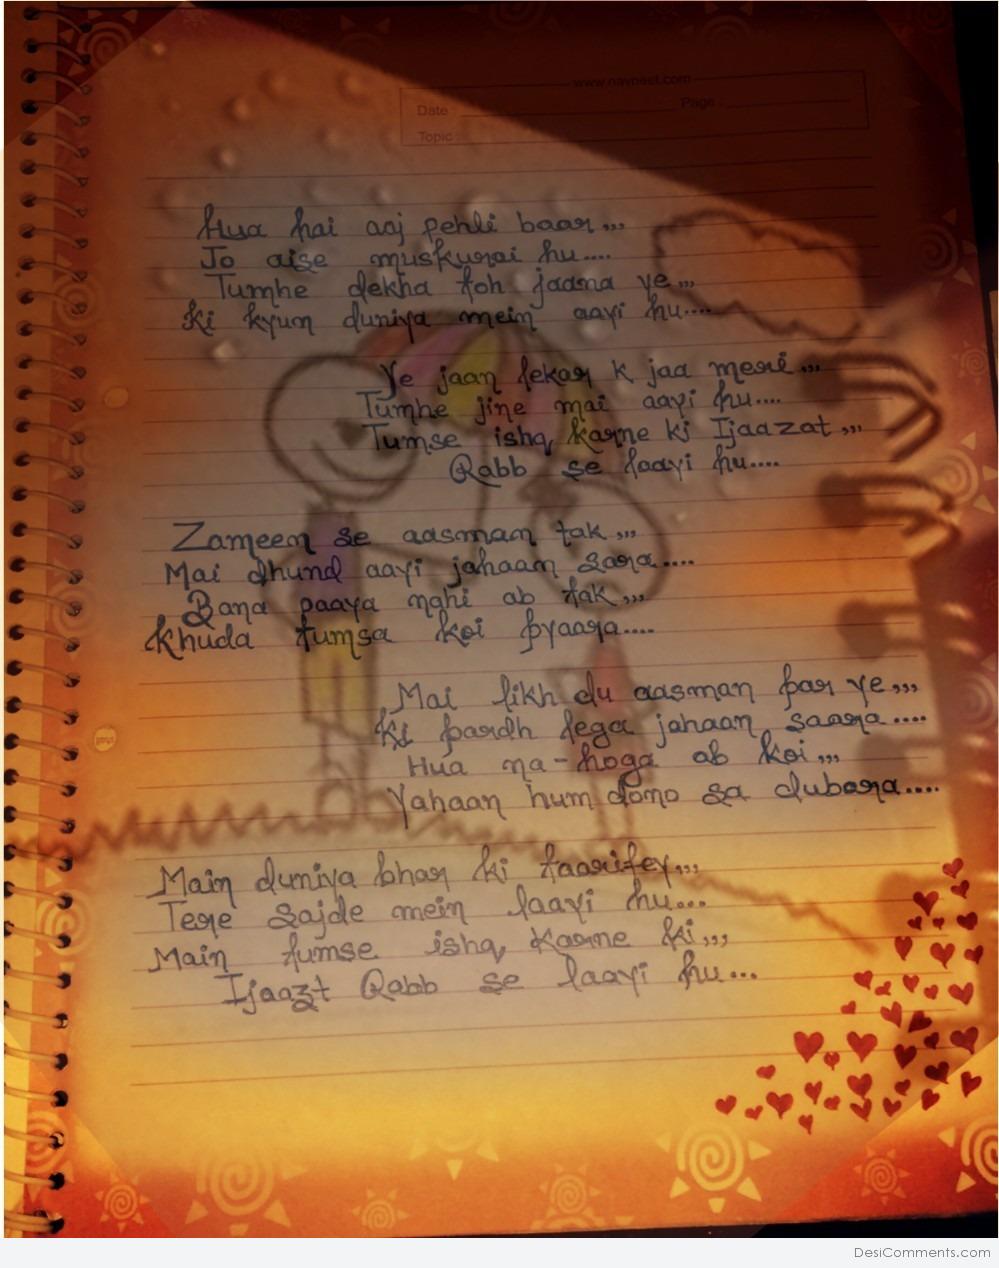 www.navneet.com
Date : Page :
Topic :
Hua hai aaj pehli baar,,,
Jo aise muskurai hu....
Tumhe dekha toh jaana ye,,,
Ki kyun duniya mein aayi hu....
Ye jaan lekar k jaa meri,,,
Tumhe jine mai aayi hu....
Tumse ishq karne ki Ijaazat,,,
Rabb se laayi hu....
Zameen se aasman tak,,,
Mai dhund aayi jahaan sara....
Bana paaya nahi ab tak,,,
Khuda tumsa koi pyaara....
Mai likh du aasman par ye,,,
Ki pardh lega jahaan saara....
Hua na-hoga ab koi,,,
Yahaan hum dono sa dubara....
Main duniya bhar ki taarifey,,,
Tere sajde mein laayi hu...
Main tumse ishq karne ki,,,
Ijaazt Rabb se laayi hu...
DesiComments.com